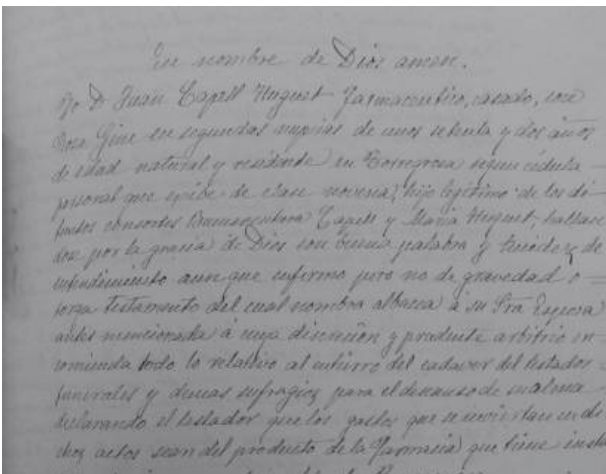 En nombre de Dios amen.
Yo D. Juan Capell Huguet Farmaceutico, casado, con
Rosa Giné en segundas nupcias de unos setenta y dos años
de edad natural y residente en Torregrosa segun cédula
personal que exibe de clase novena, hijo legitimo de los di-
funtos consortes Buenaventura Capell y Maria Huguet, hallan
dose por la gracia de Dios con buena palabra y lucidez de
entendimiento aunque enfermo pero no de gravedad o
torga testamento del cual nombra albacea á su Sra Esposa
antes mencionada á cuya discrecion y prudente arbitrio en
comienda todo lo relativo al entierro del cadaver del testador
funerales y demas sufragios para el descanso de su alma
declarando el testador que los gastos que se inviertan en di
chos actos sean del producto de la Farmacia que tiene